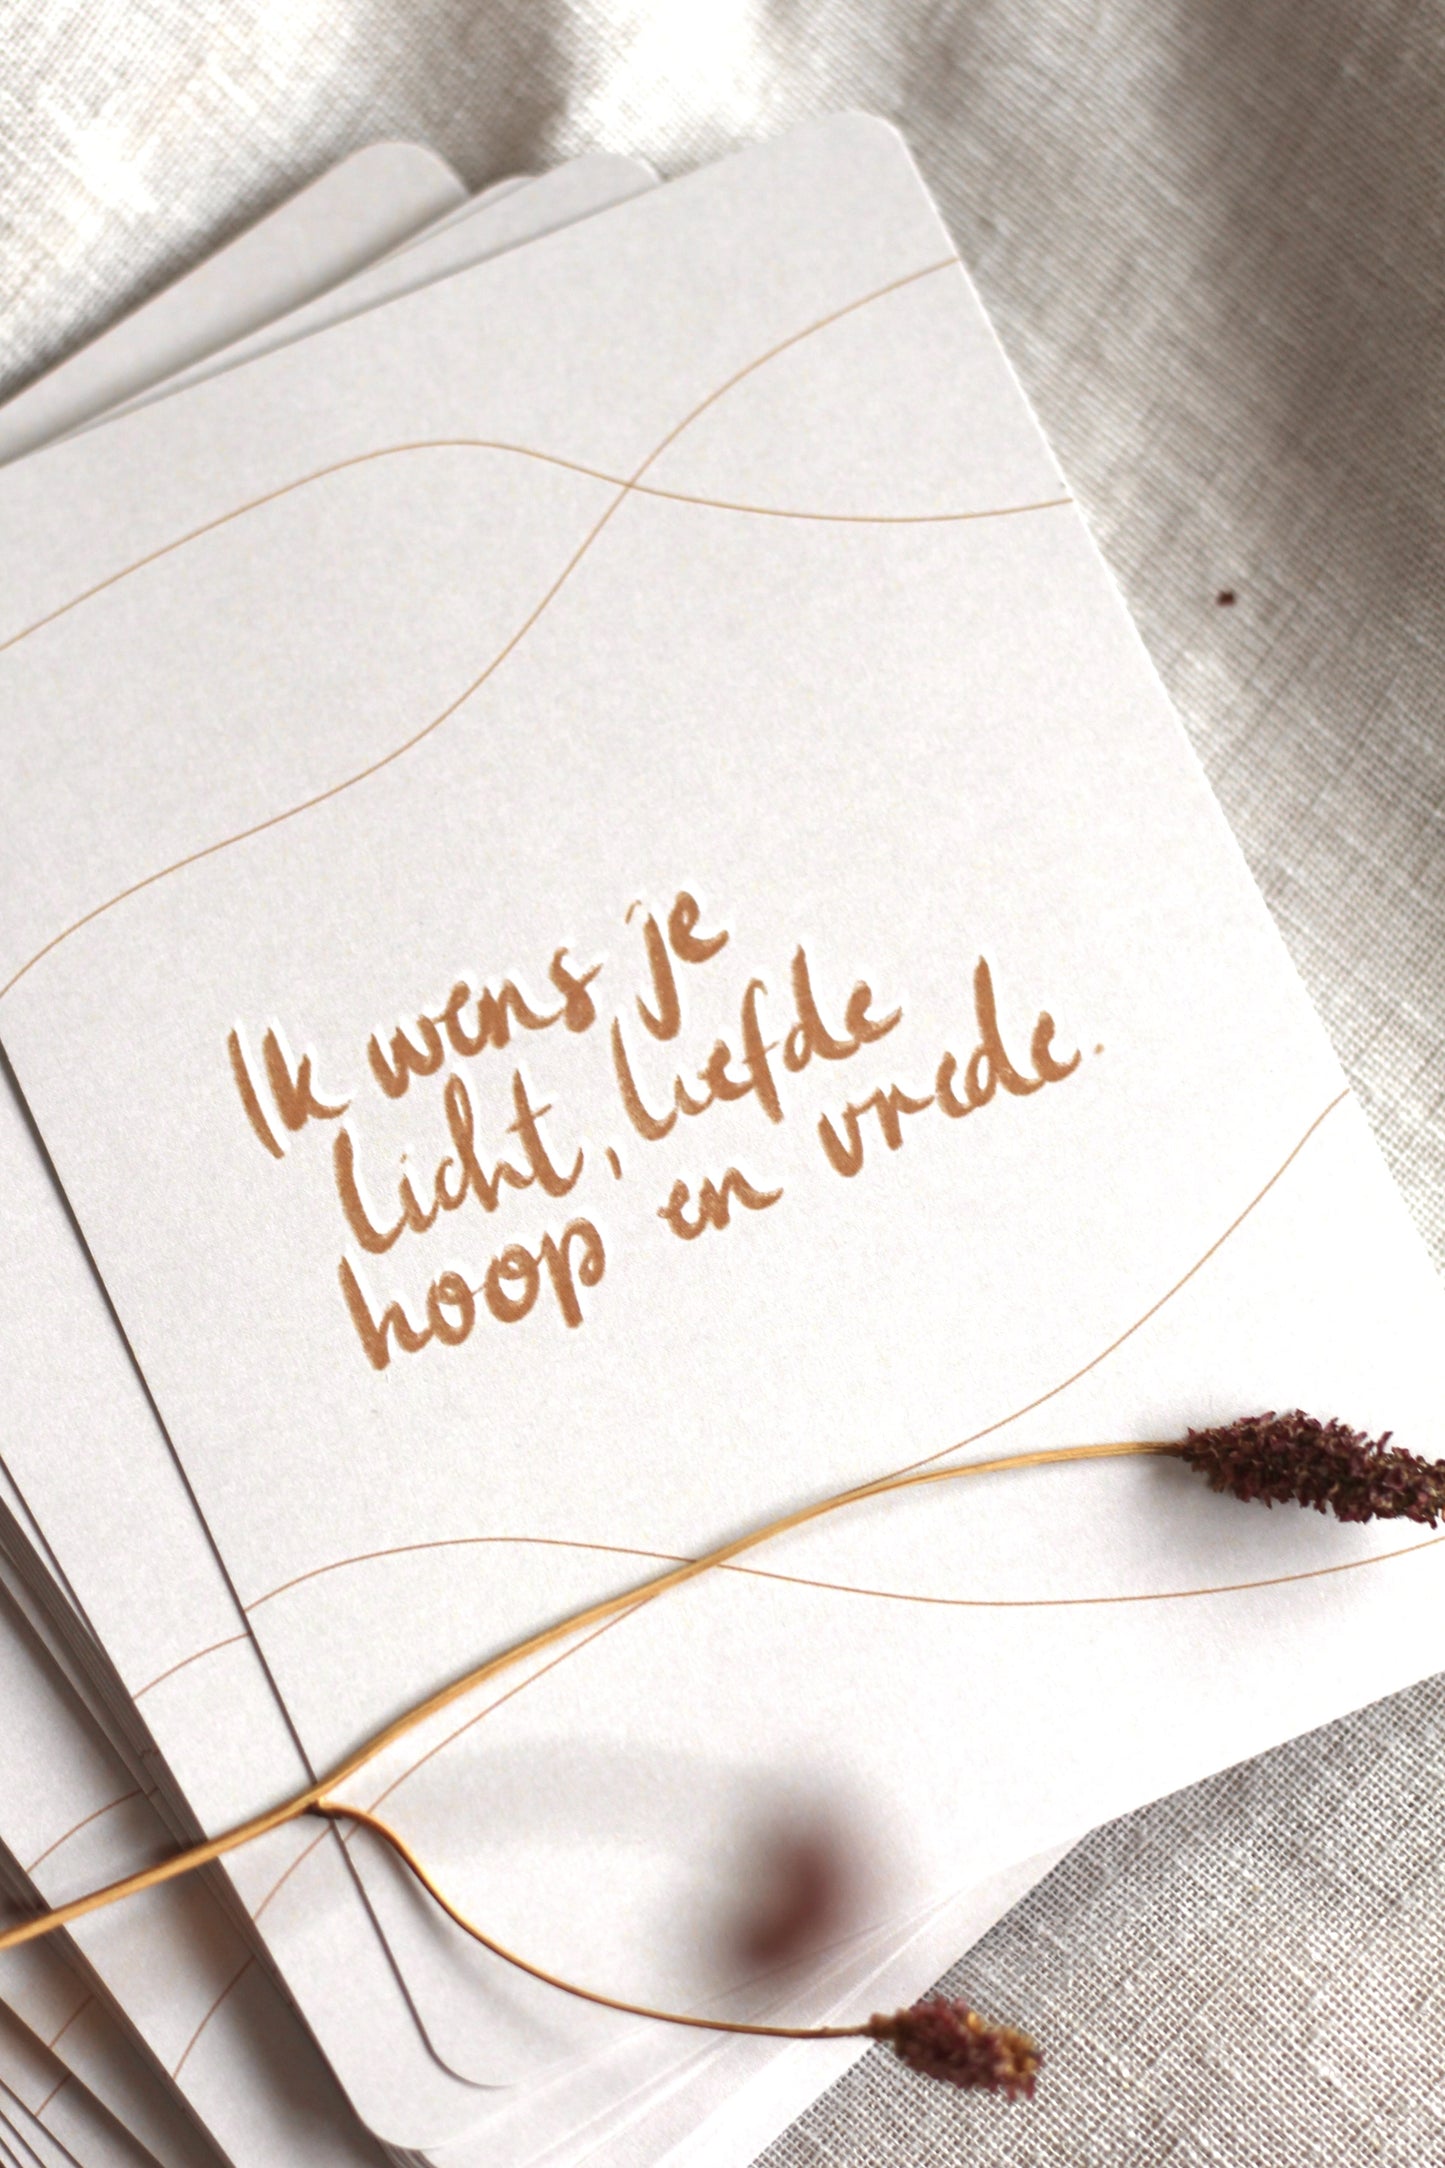 Ik wens je
licht, liefde
hoop en vrede.